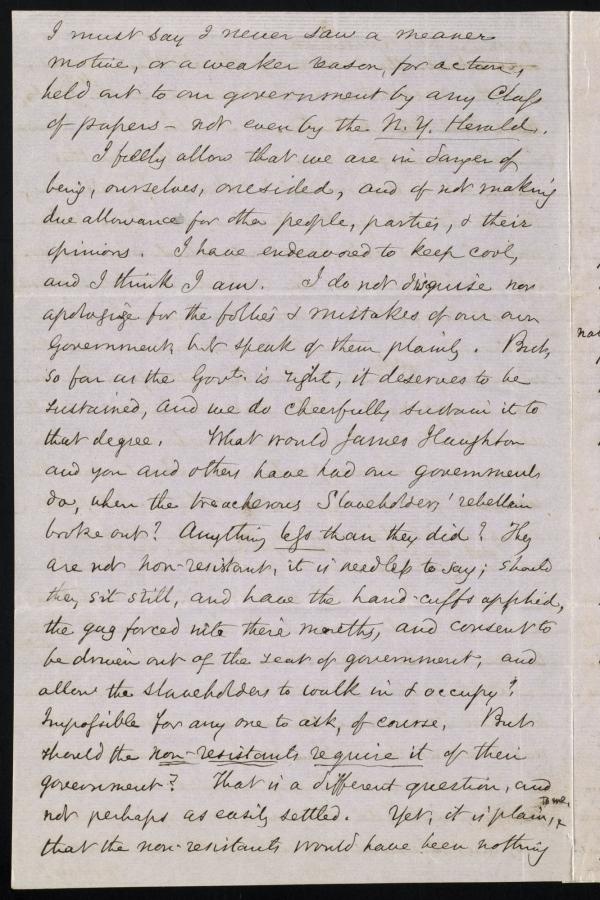 I must say I never saw a meaner
motive, or a weaker reason, for action,
held out to our government by any class
of papers - not even by the N. Y. Herald.
I fully allow that we are in danger of
being, ourselves, onesided, and of not making
due allowance for other people, parties, & their
opinions. I have endeavored to keep cool,
and I think I am. I do not disguise nor
apologize for the follies & mistakes of our own
Government, but speak of them plainly. But,
so far as the Govt. is right, it deserves to be
sustained, and we do cheerfully sustain it to
that degree. What would James Haughton
and you and others have had our government
do, when the treacherous Slaveholders' rebellion
broke out? Anything less than they did? They
are not non-resistant, it is needless to say; should
they sit still, and have the hand-cuffs applied,
the gag forced into their mouths, and consent to
be driven out of the seat of government, and
allow the slaveholders to walk in & occupy?
Impossible for any one to ask, of course. But
should the non-resistants require it of their
government? That is a different question, and
not perhaps as easily settled. Yet, it is plain, to me,
that the non-resistants would have been nothing